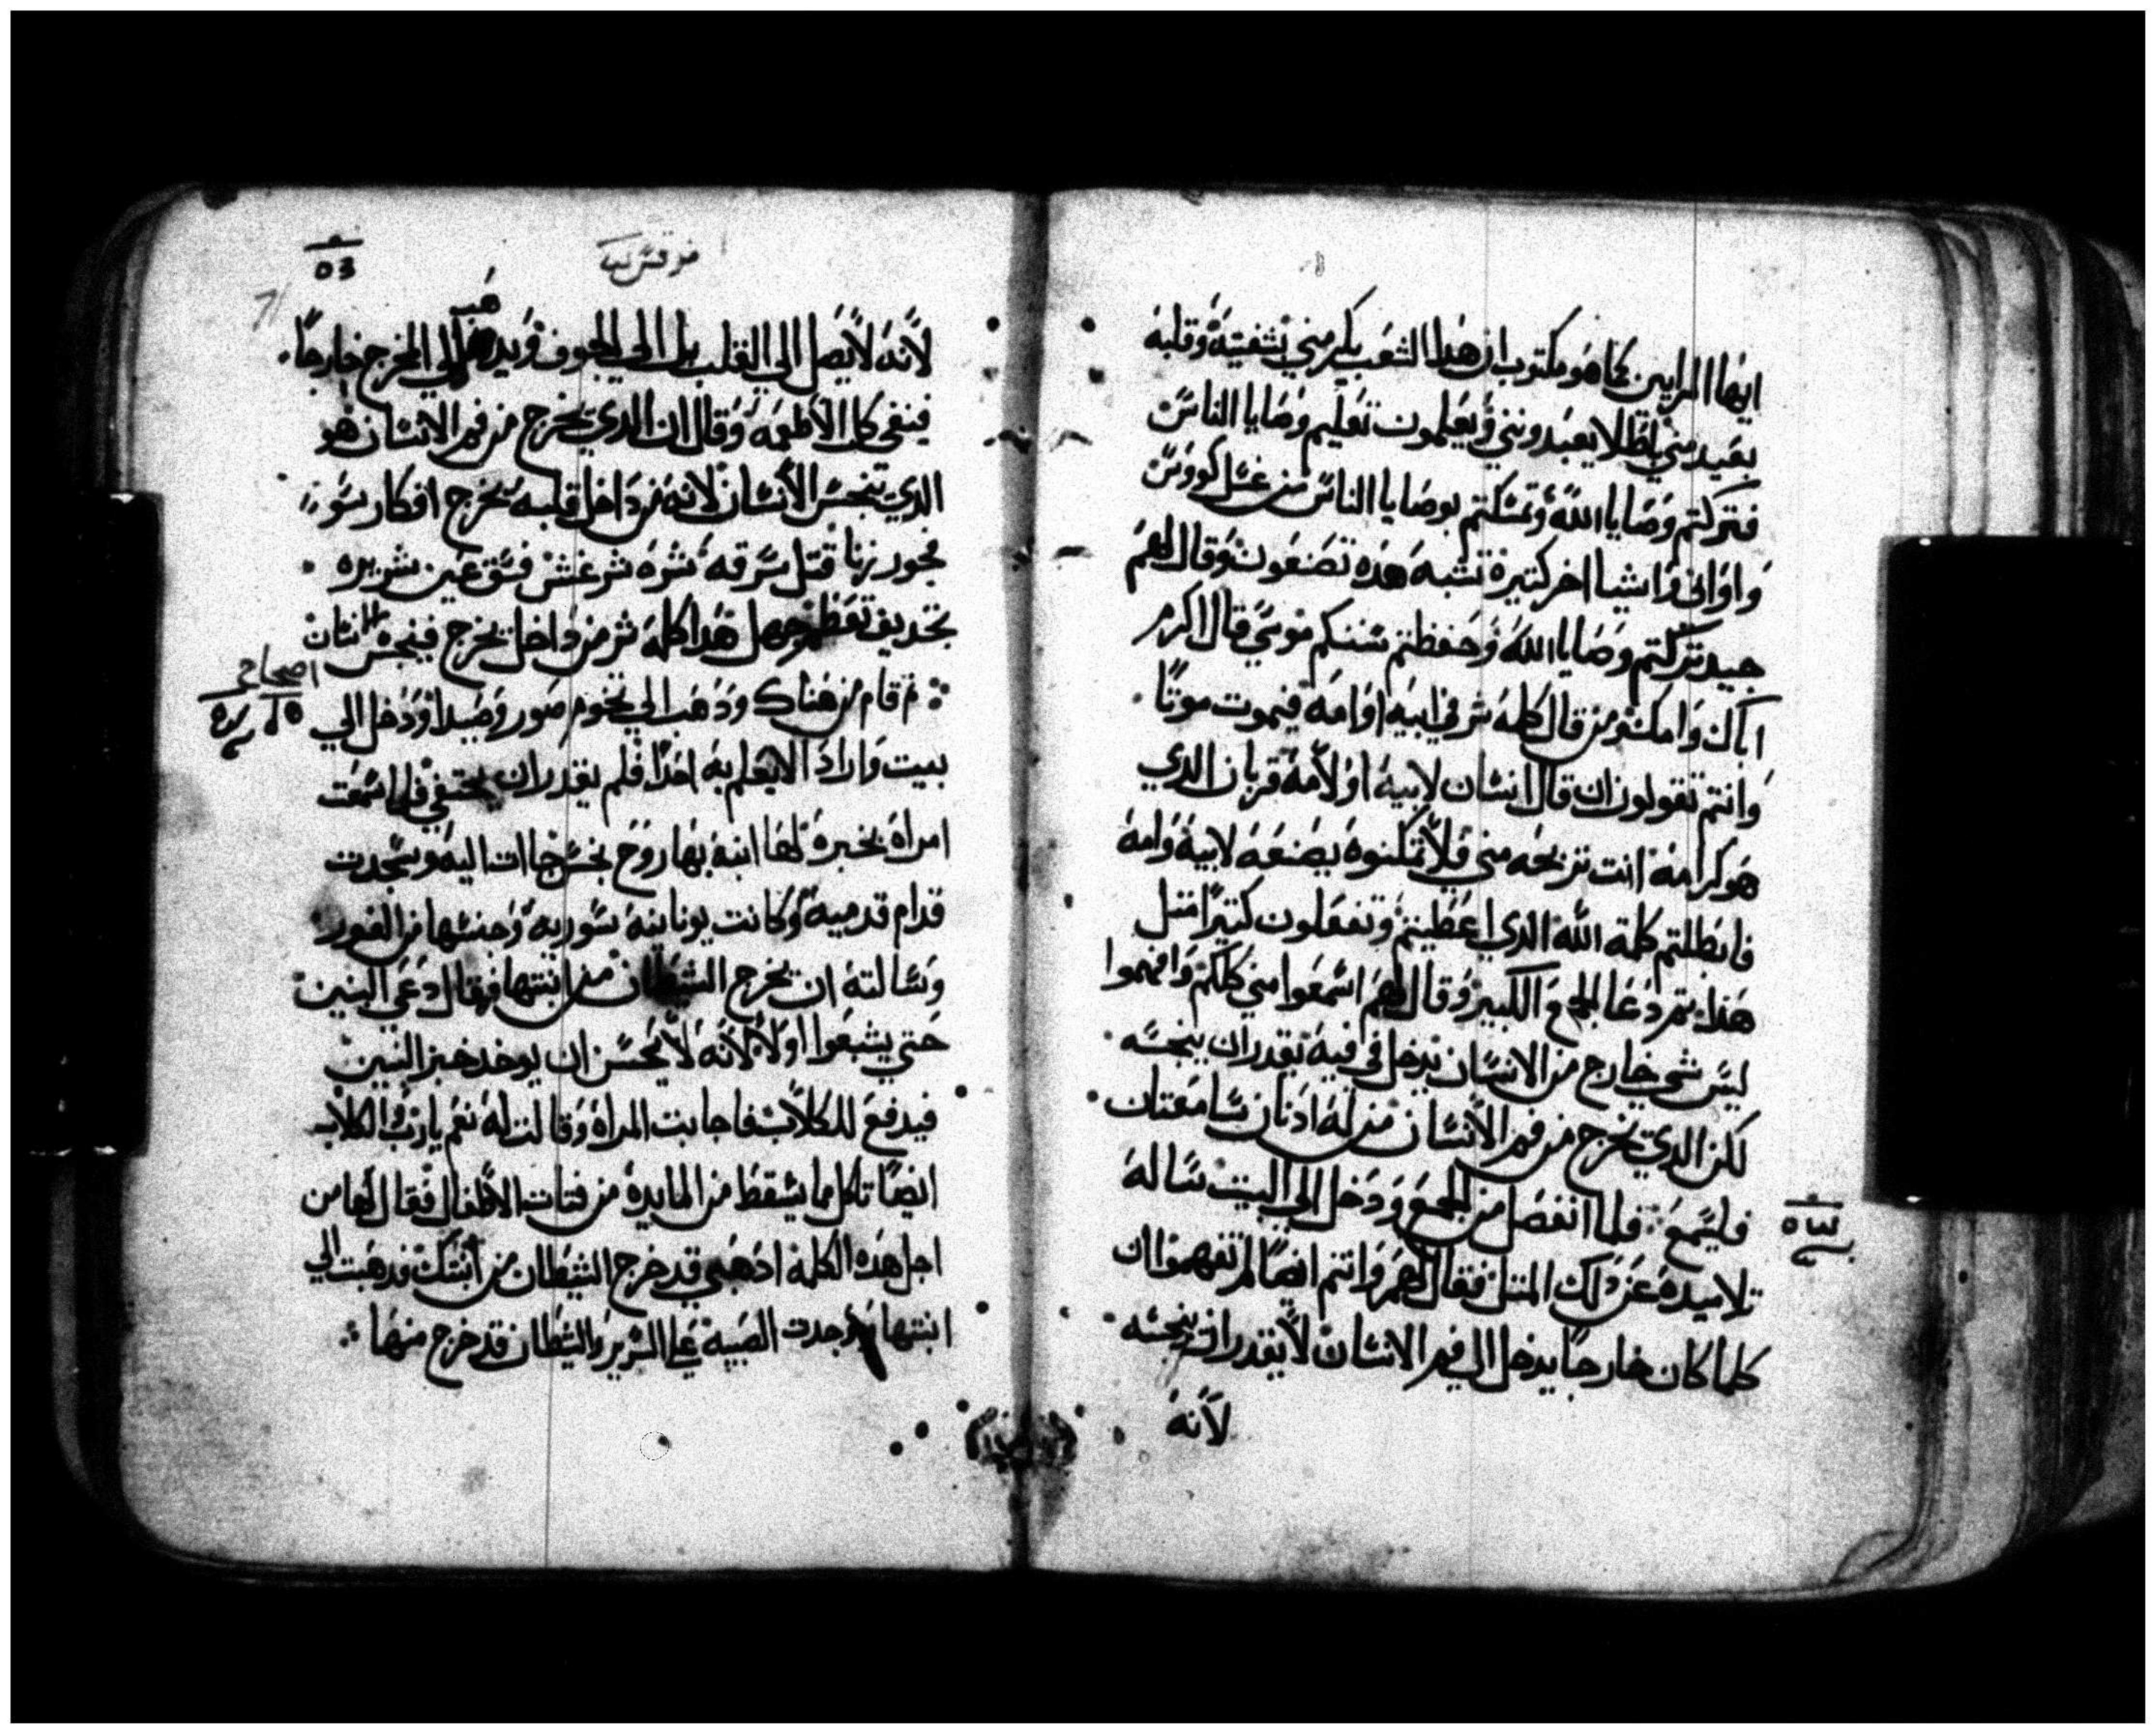 ايها المرايين كما هو مكتوب ان هدا الشعب يكرمني بشفتيه وقلبه
بعيد مني باطلا يعبدونني ويعلمون تعليم وصايا الناس
فتركتم وصايا الله وتمسكتم بوصايا الناس من غسل كووس
واواني واشيا اخر كتيره تشبه هده تصنعون وقال لهم
جيد تركتم وصايا الله وحفظتم سننكم موسي قال اكرم
اباك وامك ومن قال كلمة شر في ابيه او امه فيموت موتا
وانتم تقولون ان قال انسان لابيه او لامه قربان الدي
هو كرامه انت تربحه مني فلا تمكنوه يصنعه لابيه وامه
فابطلتم كلمة الله الدي اعطيتم وتفعلون كتيرا متل
هدا تم دعا الجمع الكبير وقال لهم اسمعوا مني كلكم وافهموا
ليس شي خارج من الانسان يدخل في فيه يقدر ان ينجسه
لكن الدي يخرج من فم الانسان من له ادنان سامعتان
فليسمع فلما انفصل من الجمع ودخل الي البيت ساله
تلاميده عن دلك المتل فقال لهم وانتم ايضا لم تفهموا ان
كلما كان خارجا يدخل الي فم الانسان لا يقدر ان ينجسه
لانه
مرقس
لانه لا يصل الي القلب بل الي الجوف ويدهب الي المخرج خارجا
فينقي كل الاطعمه وقال ان الدي يخرج من فم الانسان هو
الدي ينجس الانسان لانه من داخل قلبه يخرج افكار سو
فجور زنا قتل سرقه شره شر غش فسق عين شريره
تجديف تعظم جهل هدا كله شر من داخل يخرج فينجس الانسان
تم قام من هناك ودهب الي تخوم صور وصيدا ودخل الي
اصحاح
بيت واراد الا يعلم به احدا فلم يقدر ان يختفي فلما سمعت
امراه بخبره لها ابنه بها روح نجس جات اليه وسجدت
قدام قدميه وكانت يونانيه سوريه وجنسها من الغور
وسالته ان يخرج الشيطان من ابنتها فقال دعي البنين
حتي يشبعوا اولا لانه لا يحسن ان يوخد خبز البنين
فيدفع للكلاب فاجابت المراه وقالت له نعم يا رب والكلاب
ايضا تاكل مما يسقط من المايده من فتات الاطفال فقال لها من
اجل هده الكلمه ادهبي قد خرج الشيطان من ابنتك فدهبت الي
ابنتها وجدت الصبيه علي السرير والشيطان قد خرج منها